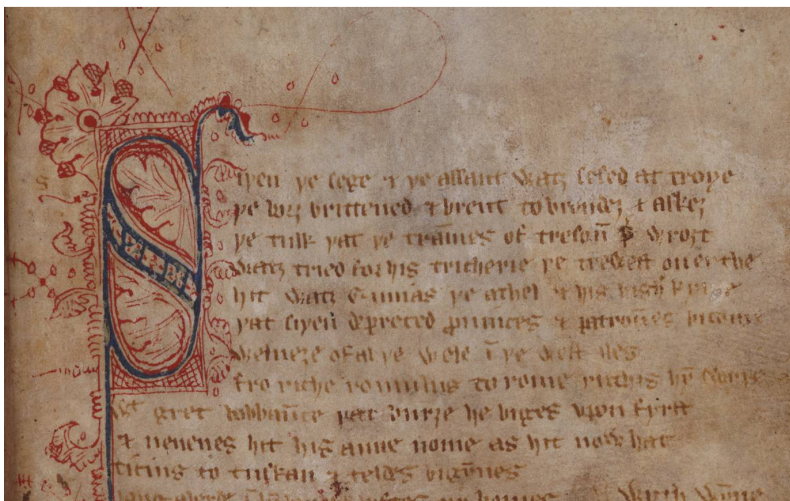 Siþen þe sege & þe assaut watz sesed at troye
þe borȝ brittened & brent to brondeȝ & askeȝ
þe tulk þat þe tram̄es of tresoū þ̄ wroȝt
watz tried for his tricherie þe trewest on erthe
hit watz Ennias þe athel & his highe kynde
þat siþen depreced ꝓuinces & patroūes bicome
welneȝe of al þe wele ī þe west iles
fro riche romulus to rome ricchis hȳ
gret bobbaūce þat burȝe he biges vpon fyrst
& neuenes hit his aune nome as hit now hat
ticius to tuskan & teldes bigȳnes